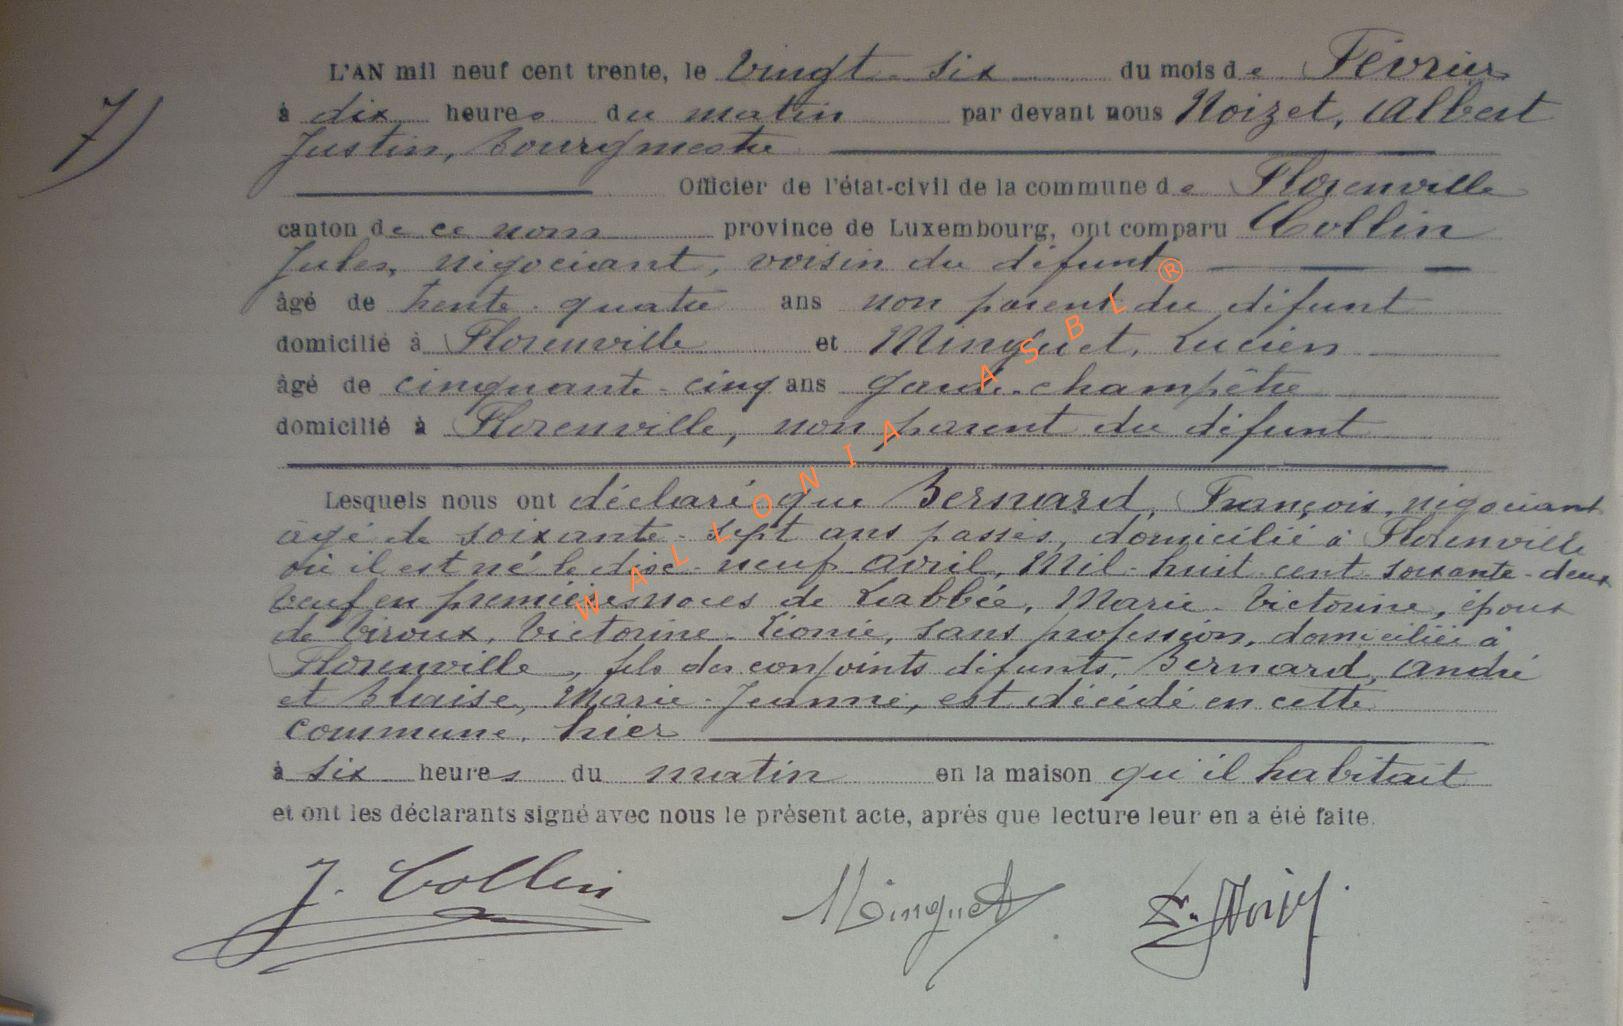 7)
L'AN mil neuf cent trente, le vingt-six du mois de Février
à dix heures du matin par devant nous Noizet, Albert
Justin, Bourgmestre
Officier de l'état-civil de la commune de Florenville
canton de ce nom province de Luxembourg, ont comparu Collin
Jules, négociant, voisin du défunt
âgé de trente-quatre ans non parent du défunt
domicilié à Florenville et Minguet, Lucien
âgé de cinquante-cinq ans garde-champêtre
domicilié à Florenville, non parent du défunt
Lesquels nous ont déclaré que Bernard, François, négociant
âgé de soixante-sept ans passés, domicilié à Florenville
où il est né le dix-neuf avril, Mil-huit-cent-soixante-deux
veuf en premières noces de Labbée, Marie-Victorine, époux
de Viroux, Victorine-Léonie, sans profession, domiciliée à
Florenville, fils des conjoints défunts, Bernard, André
et Blaise, Marie-Jeanne, est décédé en cette
commune, hier
à six heures du matin en la maison qu'il habitait
et ont les déclarants signé avec nous le présent acte, après que lecture leur en a été faite.
J. Collin Minguet Noizet
WALLONIA ASBL ®